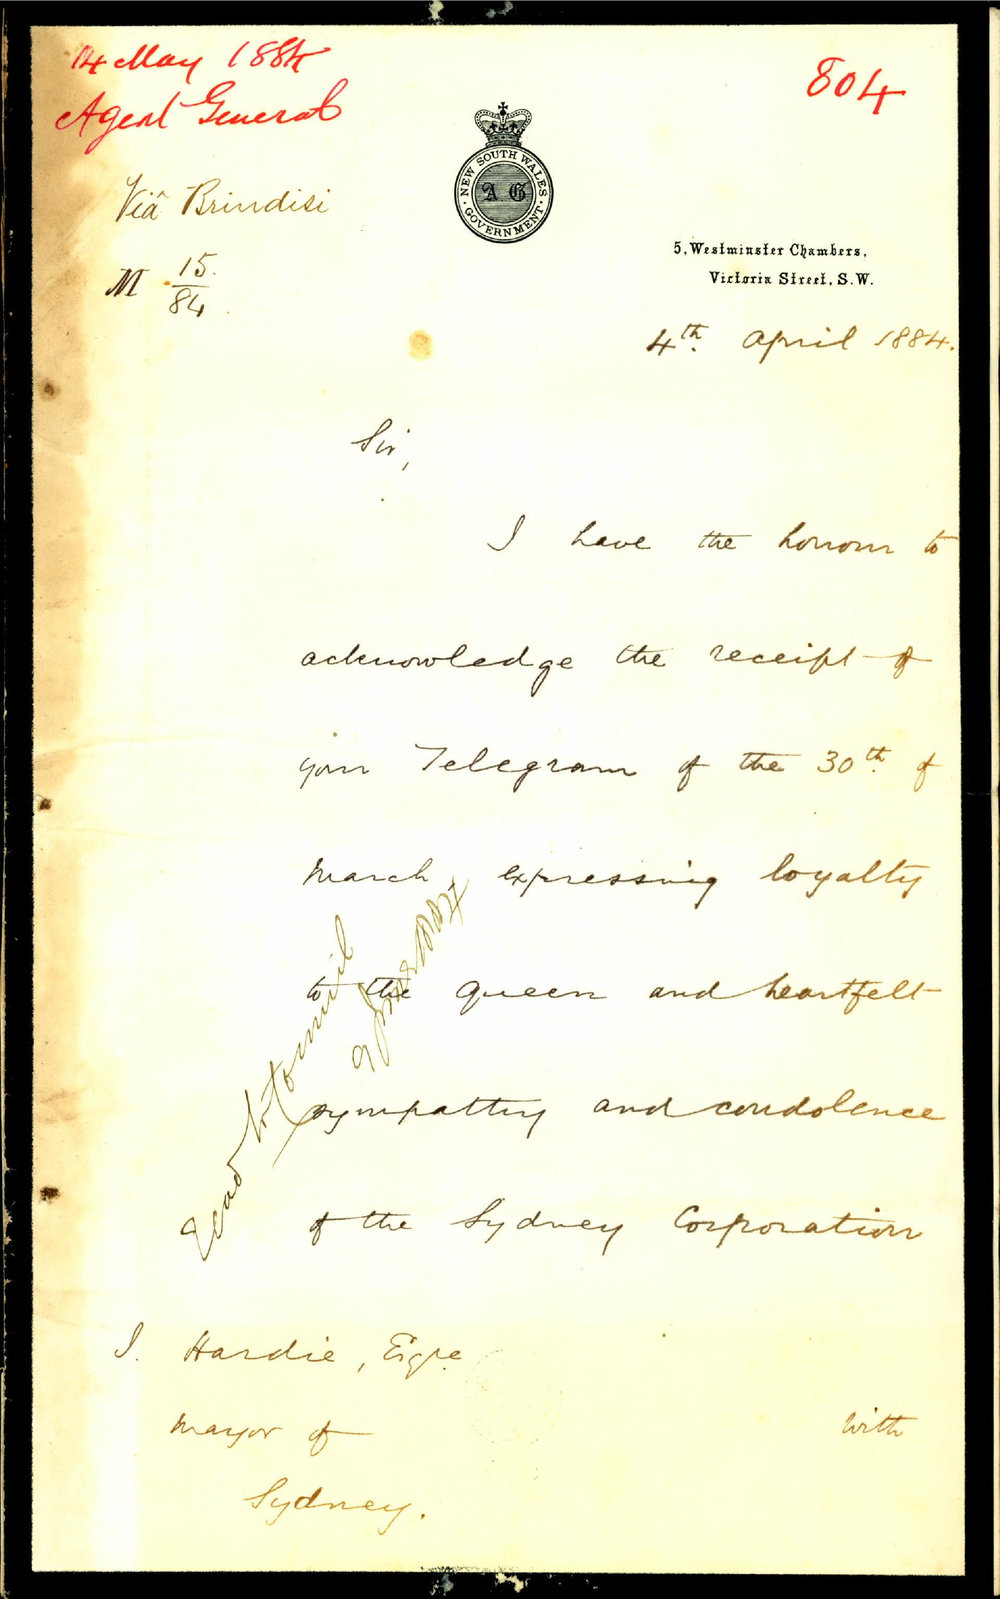 14 May 1884
Agent General
804
Viâ Brindisi
M 15/84
NEW SOUTH WALES
A G
GOVERNMENT
5, Westminster Chambers,
Victoria Street, S.W.
4th. April 1884.
Sir,
I have the honour to
acknowledge the receipt of
your Telegram of the 30th. of
March, expressing loyalty
to the Queen and heartfelt
sympathy and condolence
of the Sydney Corporation
Read to Council
1884
J. Hardie, Esqre
Mayor of
Sydney.
with